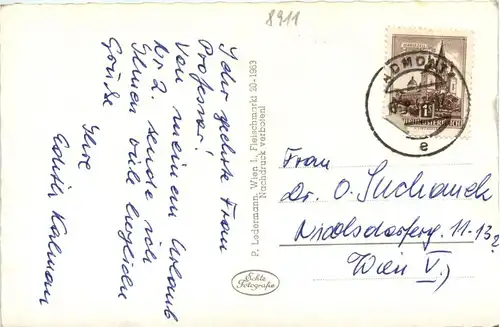 8911
Sehr geehrte Frau
Professor!
Von meinem Urlaub
Nr 2. sende ich
Ihnen viele herzliche
Grüße
Ihre
Edith Kalman
P. Ledermann, Wien I, Fleischmarkt 20-1963
Nachdruck verboten!
Echte
Fotografie
ADMONT
e
Frau
Dr. O. Suchanek
Nicolsdorferg. 11-13
Wien V.,